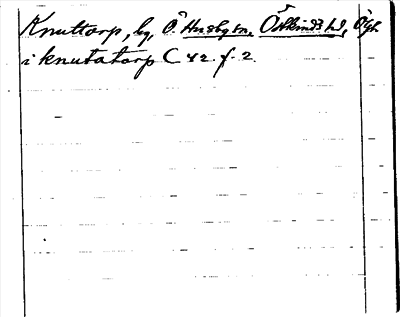 Knuttorp, by, Ö. Husby sn, Östkinds hd, Ögl.
i knutatorp C 42. f. 2.